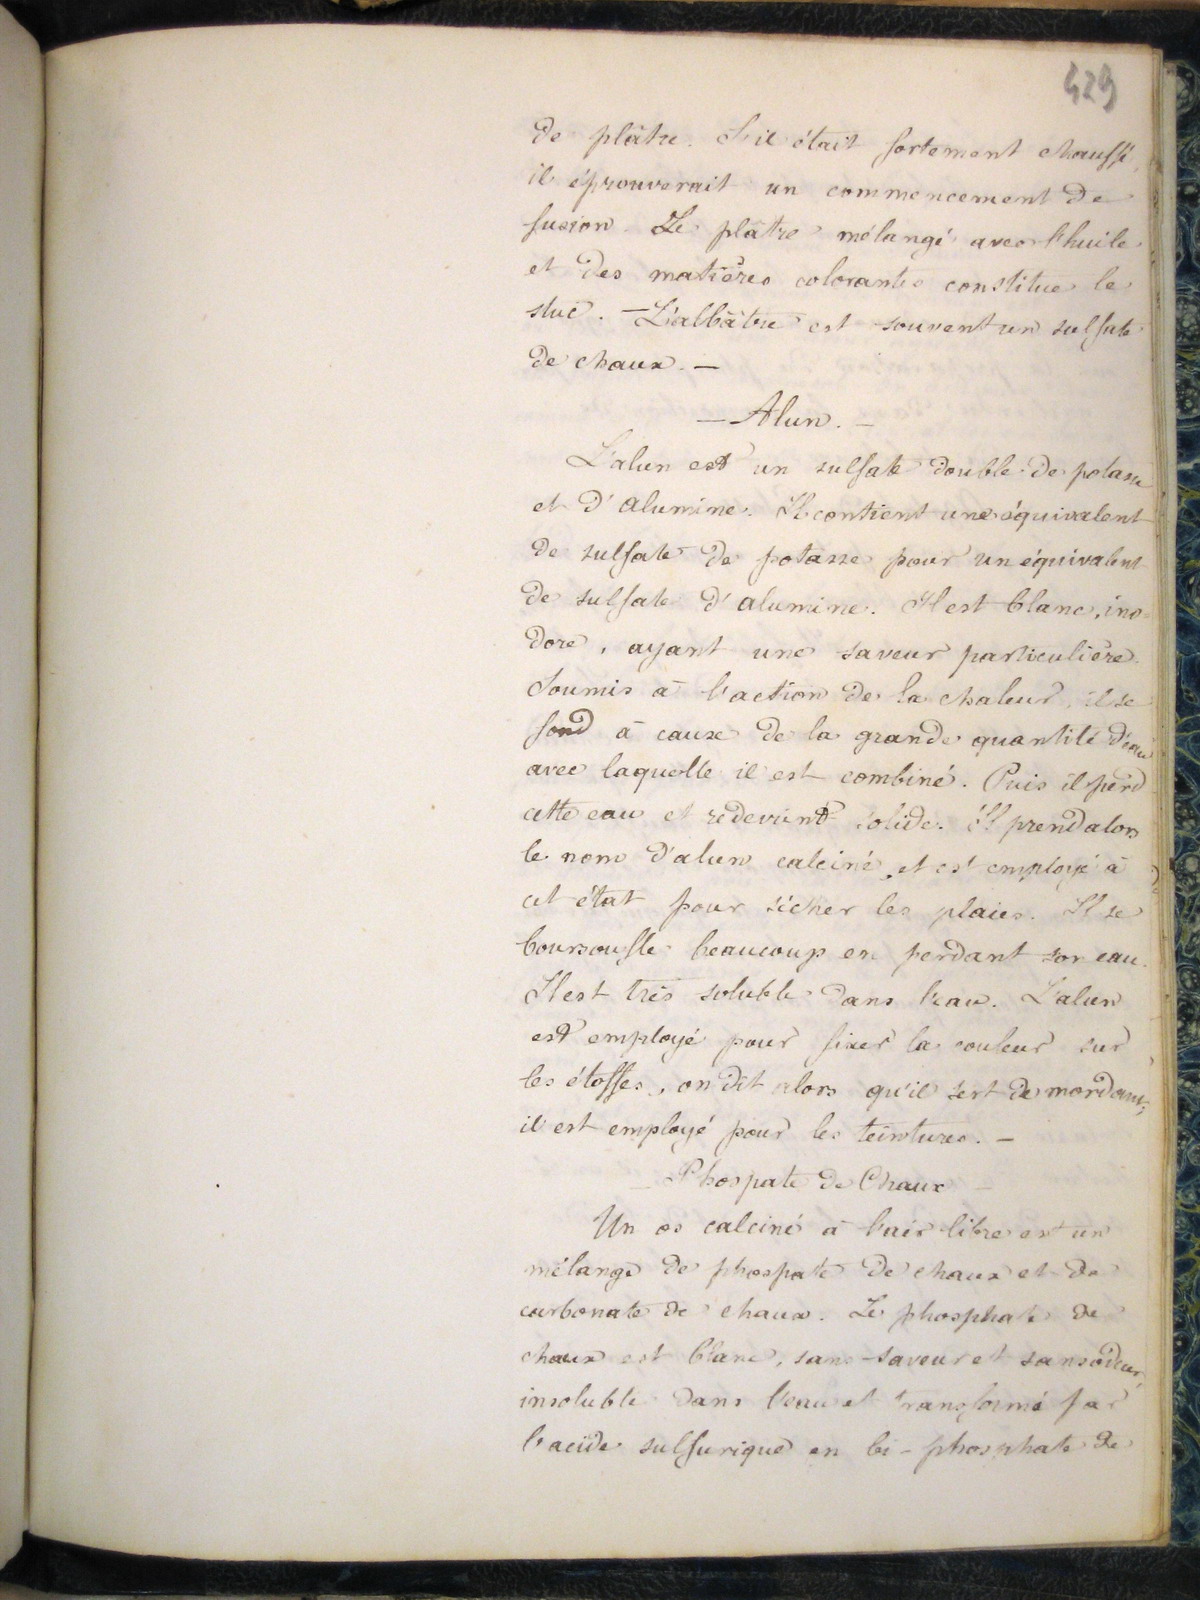 429
de plâtre. S'il était fortement chauffé,
il éprouverait un commencement de
fusion. Le plâtre mélangé avec l'huile
et des matières colorantes constitue le
stuc. — L'albâtre est souvent un sulfate
de chaux. —
— Alun. —
L'alun est un sulfate double de potasse
et d'alumine. Il contient une équivalent
de sulfate de potasse pour un équivalent
de sulfate d'alumine. Il est blanc, ino-
dore, ayant une saveur particulière.
Soumis à l'action de la chaleur, il se
fond à cause de la grande quantité d'eau
avec laquelle il est combiné. Puis il perd
cette eau et redevient solide. Il prend alors
le nom d'alun calciné, et est employé à
cet état pour sécher les plaies. Il se
boursoufle beaucoup en perdant son eau.
Il est très soluble dans l'eau. L'alun
est employé pour fixer la couleur sur
les étoffes, on dit alors qu'il sert de mordant;
il est employé pour les teintures. —
— Phospate de Chaux —
Un os calciné à l'air libre est un
mélange de phospate de chaux et de
carbonate de chaux. Le phosphate de
chaux est blanc, sans saveur et sans odeur,
insoluble dans l'eau et transformé par
l'acide sulfurique en bi-phosphate de